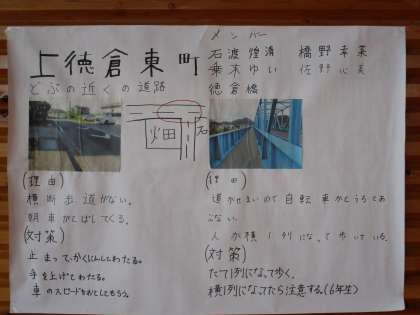 上徳倉東町
どぶの近くの道路
メンバー
石渡煌清 橋野幸菜
乗木ゆい 佐野心美
徳倉橋
火田
石
(理由)
横断歩道がない。
朝車がとばしてくる。
(対策)
止まって、かくにんしてわたる。
手を上げてわたる。
車のスピードをおとしてもらう。
(理由)
道がせまいので自転車がとうるとあぶない。
人が横1列になって歩いている。
(対策)
たて1列になって歩く。
横1列になってたら注意する。(6年生)